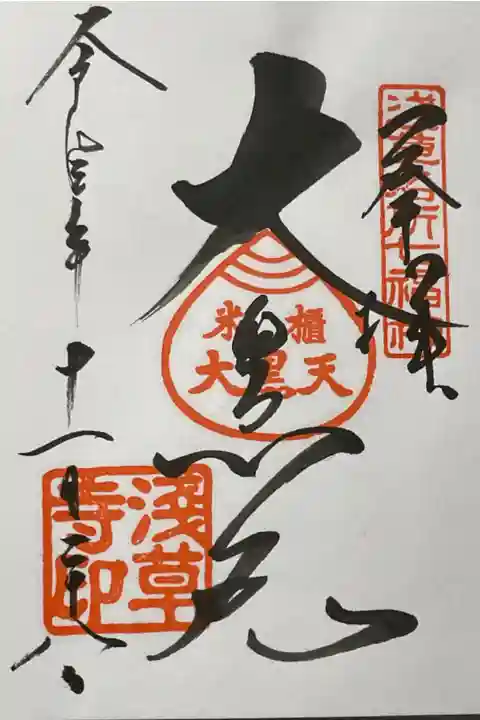 奉拝
浅草名所七福神
大黒
米櫃
大黒天
令和三年十一月二十八日
浅草寺印